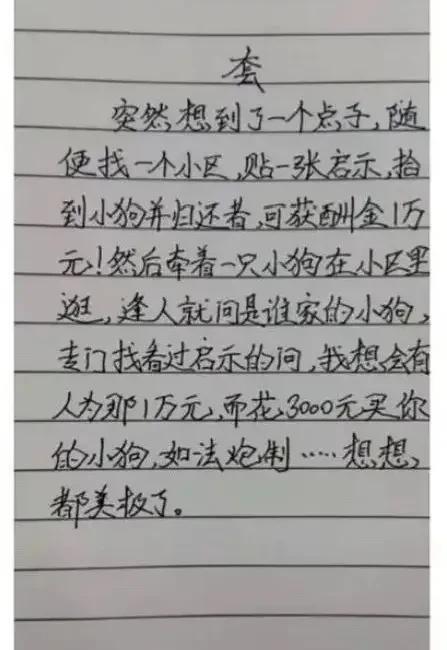 套
突然想到了一个点子,随
便找一个小区,贴一张启示,拾
到小狗并归还者,可获酬金1万
元!然后牵着一只小狗在小区里
逛,逢人就问是谁家的小狗,
专门找看过启示的问,我想会有
人为那1万元,而花3000元买你
的小狗,如法炮制……想想,
都美极了。